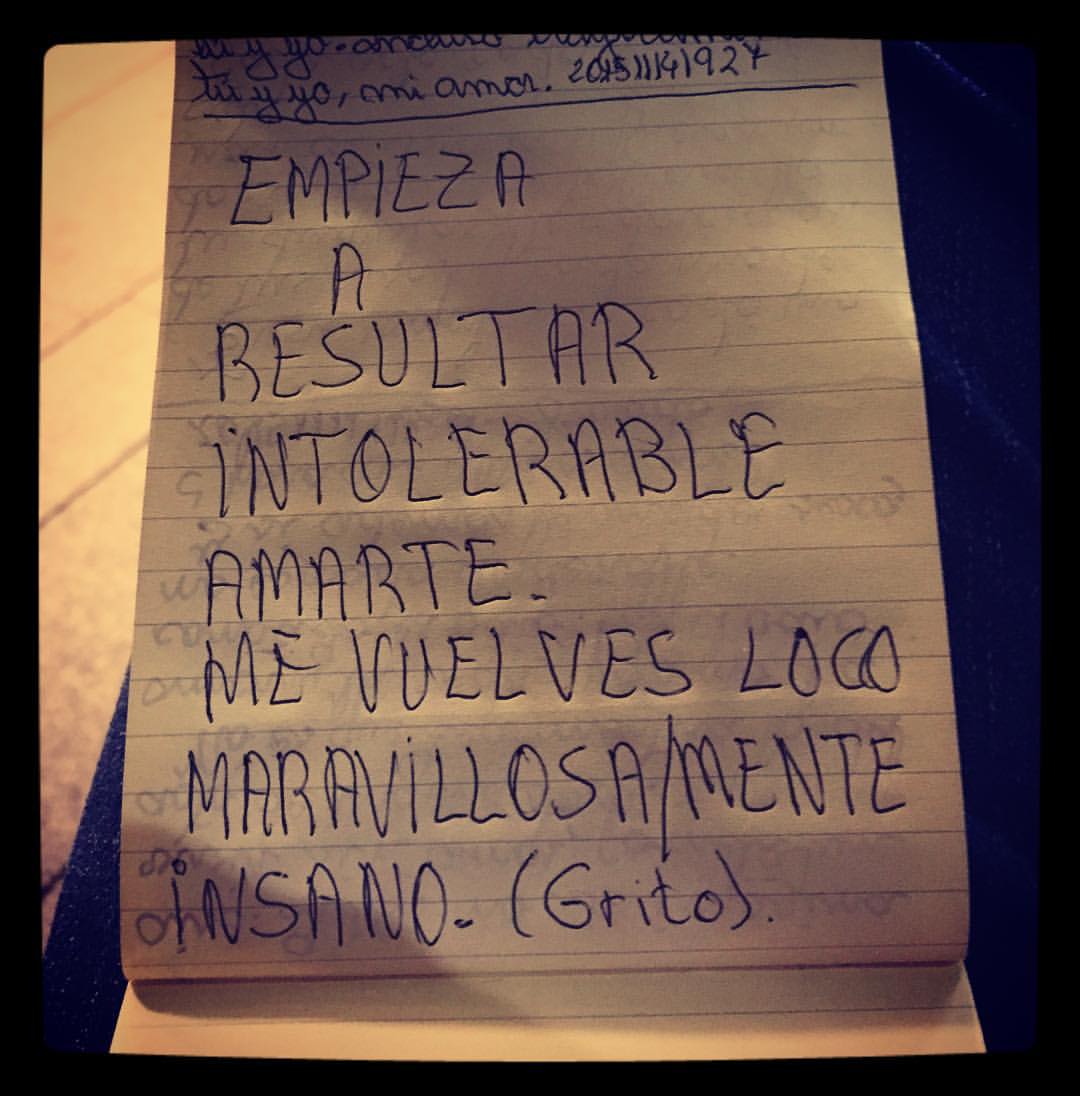 tú y yo, mi amor. 201511141927
EMPIEZA
A
RESULTAR
INTOLERABLE
AMARTE.
ME VUELVES LOCO
MARAVILLOSA/MENTE
INSANO. (Grito).